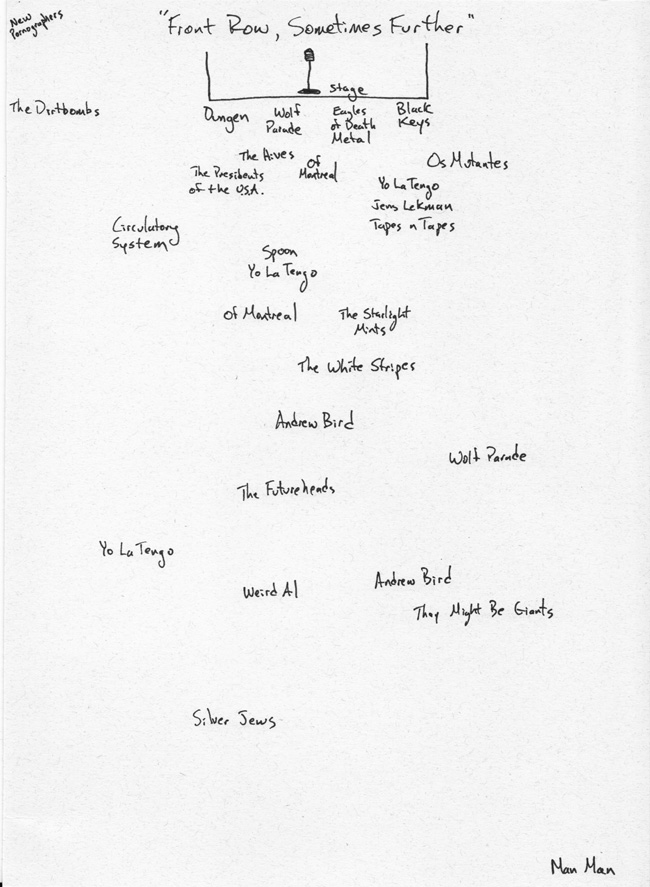 New
Pornographers
"Front Row, Sometimes Further"
Stage
The Dirtbombs
Dungen
Wolf
Parade
Eagles
of Death
Metal
Black
Keys
The Hives
Of
Montreal
Os Mutantes
The Presidents
of the U.S.A.
Yo La Tengo
Jens Lekman
Tapes n Tapes
Circulatory
System
Spoon
Yo La Tengo
Of Montreal
The Starlight
Mints
The White Stripes
Andrew Bird
Wolf Parade
The Futureheads
Yo La Tengo
Weird Al
Andrew Bird
They Might Be Giants
Silver Jews
Man Man